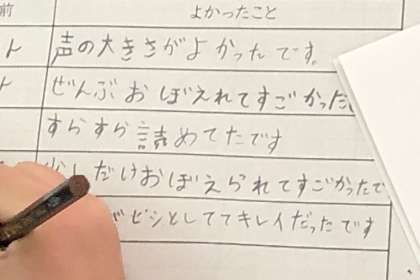 前 よかったこと
ト 声の大きさがよかったです。
ト ぜんぶおぼえれてすごかった
すらすら読めてたです
少しだけおぼえられてすごかったで
ビシとしててキレイだったです